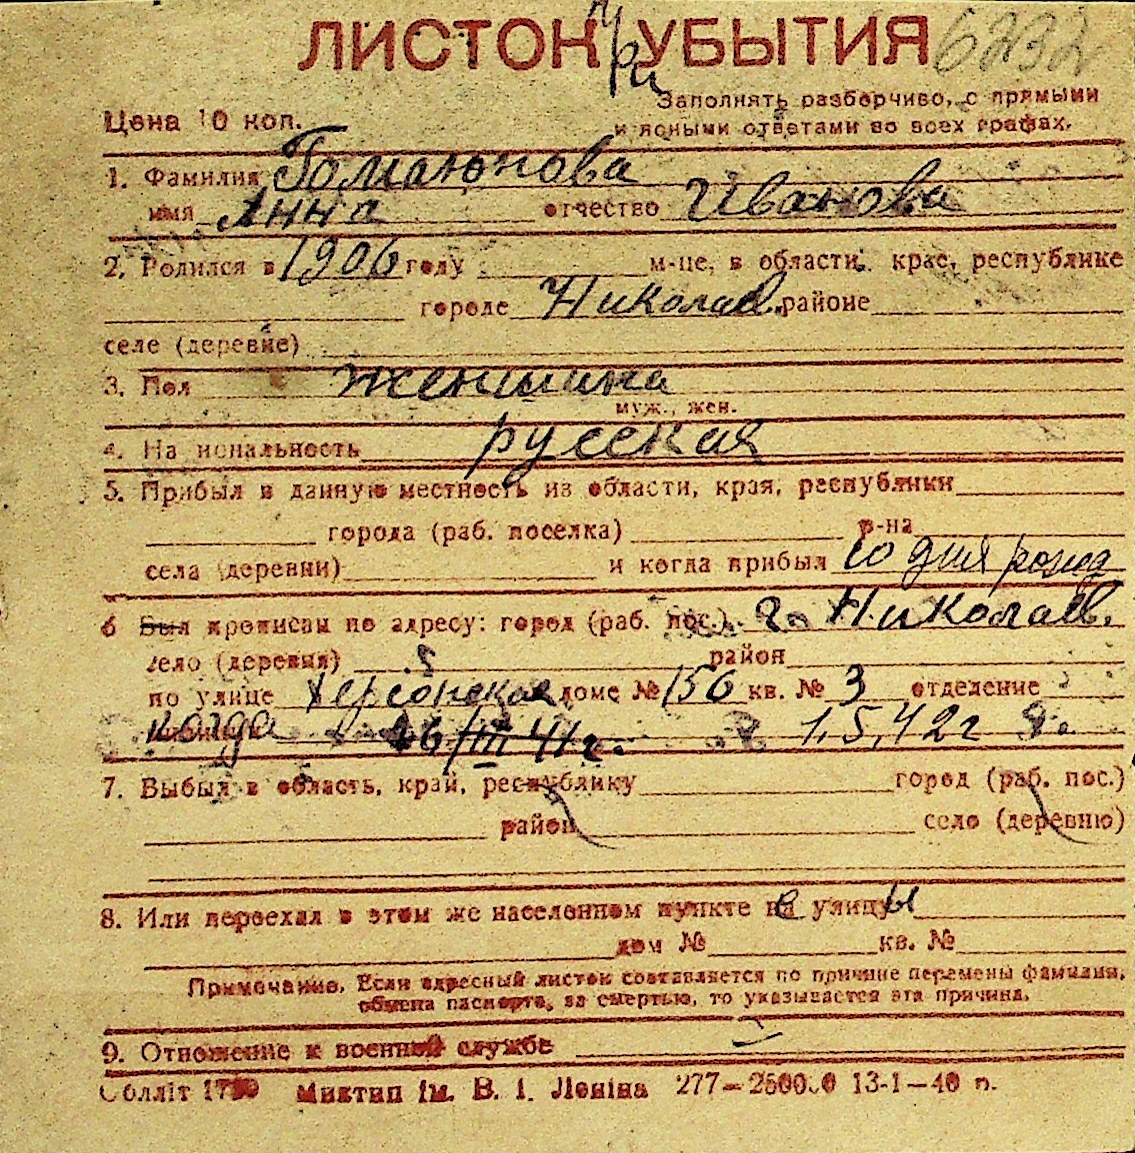 ЛИСТОК при УБЫТИЯ 6232
Заполнять разборчиво, с прямыми
Цена 10 коп.
и ясными ответами во всех графах.
1. Фамилия
имя Анна отчество Иванова
2. Родился в 1906 году м-це, в области, крае, республике
городе Николаев районе
селе (деревне)
3. Пол женщина
муж., жен.
4. Национальность русская
5. Прибыл в данную местность из области, края, республики
города (раб. поселка) р-на
села (деревни) и когда прибыл со дня рожд
6 Был прописан по адресу: город (раб. пос.) г. Николаев.
село (деревня) район
по улице Херсонская доме № 156 кв. № 3 отделение
когда 16/III 41 г. 1.5.42 г
7. Выбыл в область, край, республику город (раб. пос.)
район село (деревню)
8. Или переехал в этом же населенном пункте с улицы
дом № кв. №
Примечание. Если адресный листок составляется по причине перемены фамилии,
обмена паспорта, за смертью, то указывается эта причина.
9. Отношение к военной службе
Обллiт Миктип iм. В. I. Ленiна 277—250000 13-1—40 п.